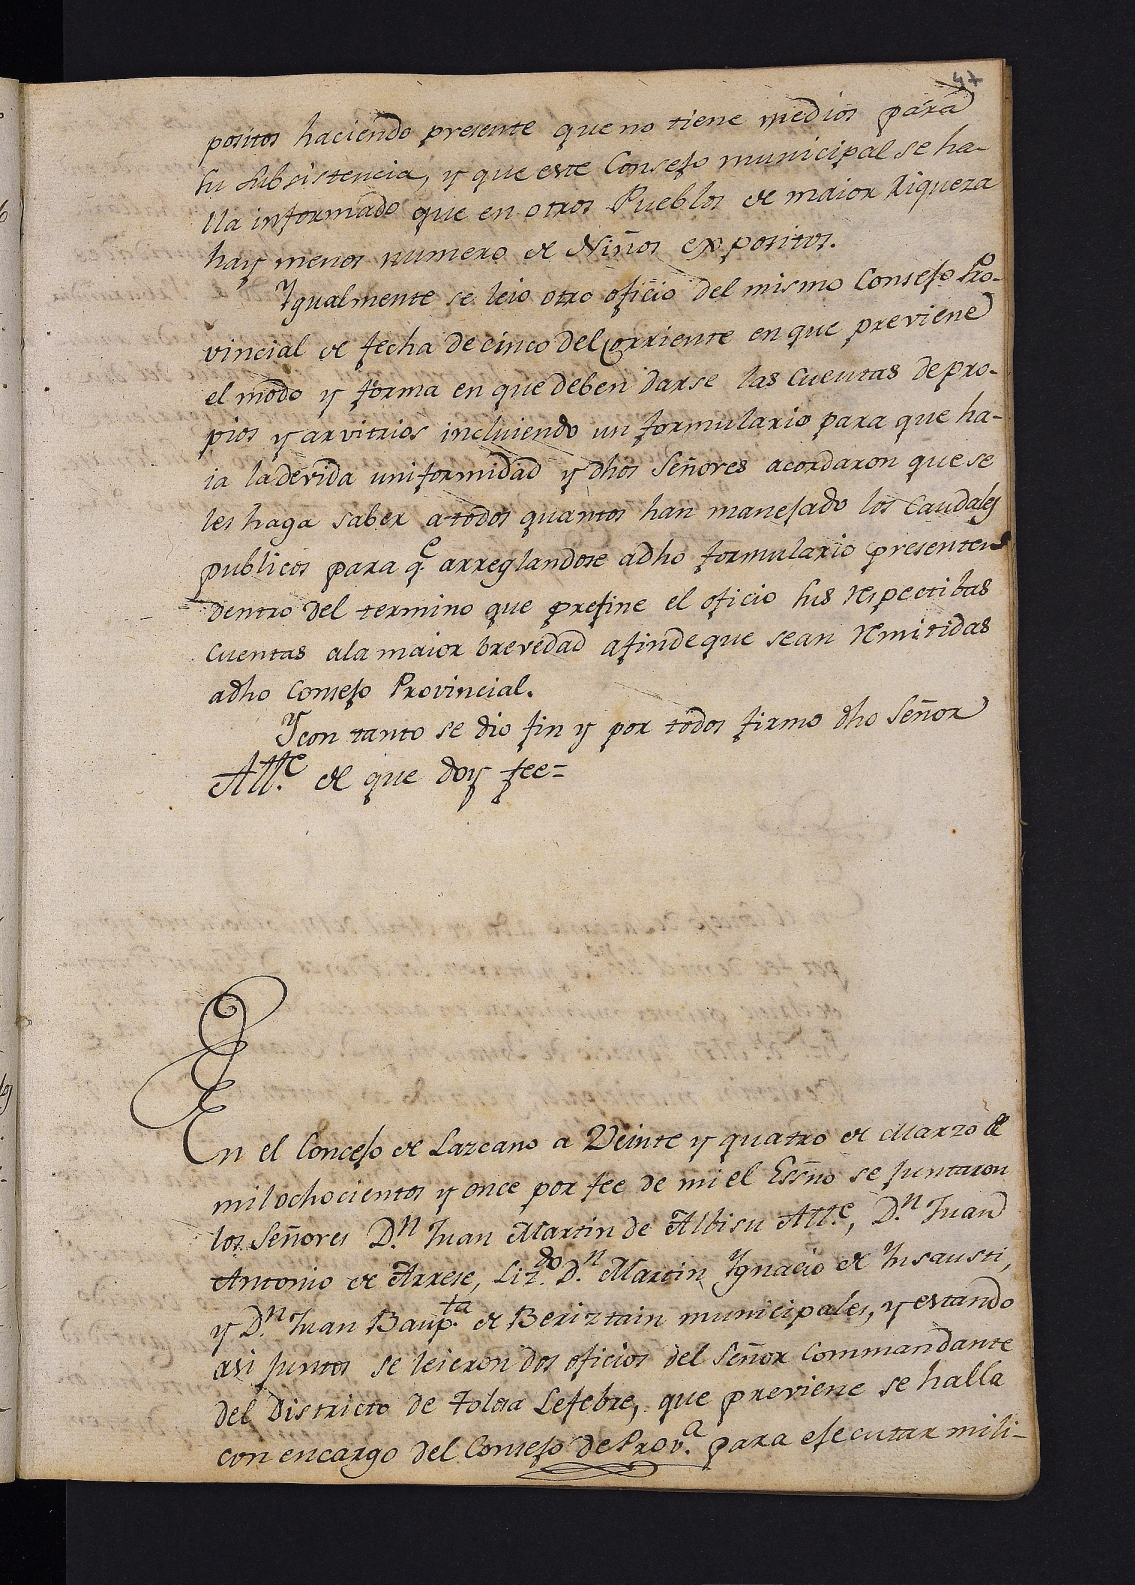 47
positos haciendo presente que no tiene medios para
su subsistencia, y que este Consejo municipal se ha-
lla informado que en otros Pueblos de maior riqueza
hay menos numero de Niños expositos.
Ygualmente se leio otro oficio del mismo Consejo Pro-
vincial de fecha de cinco del corriente en que previene
el modo y forma en que deben darse las cuentas de pro-
pios y arvitrios incluiendo un formulario para que ha-
ia la devida uniformidad y dhos Señores acordaron que se
les haga saber a todos quantos han manejado los Caudales
publicos para q.e arreglandose adho formulario presenten
dentro del termino que prefine el oficio sus respectibas
cuentas ala maior brevedad afinde que sean remitidas
adho Consejo Provincial.
Y con tanto se dio fin y por todos firmo dho Señor
All.te de que doy fee=
En el Concejo de Lazcano a Veinte y quatro de Marzo de
mil ochocientos y once por fee de mi el Essño se juntaron
los Señores D.n Juan Martin de Albisu All.e, D.n Juan
Antonio de Arrese, Liz.do D.n Martin Ygnacio de Ynsausti,
y D.n Juan Baup.ta de Beriztain municipales, y estando
asi juntos se leieron dos oficios del Señor Commandante
del Districto de Tolosa Lefebre, que previene se halla
con encargo del Consejo de Prov.a para ejecutar mili-